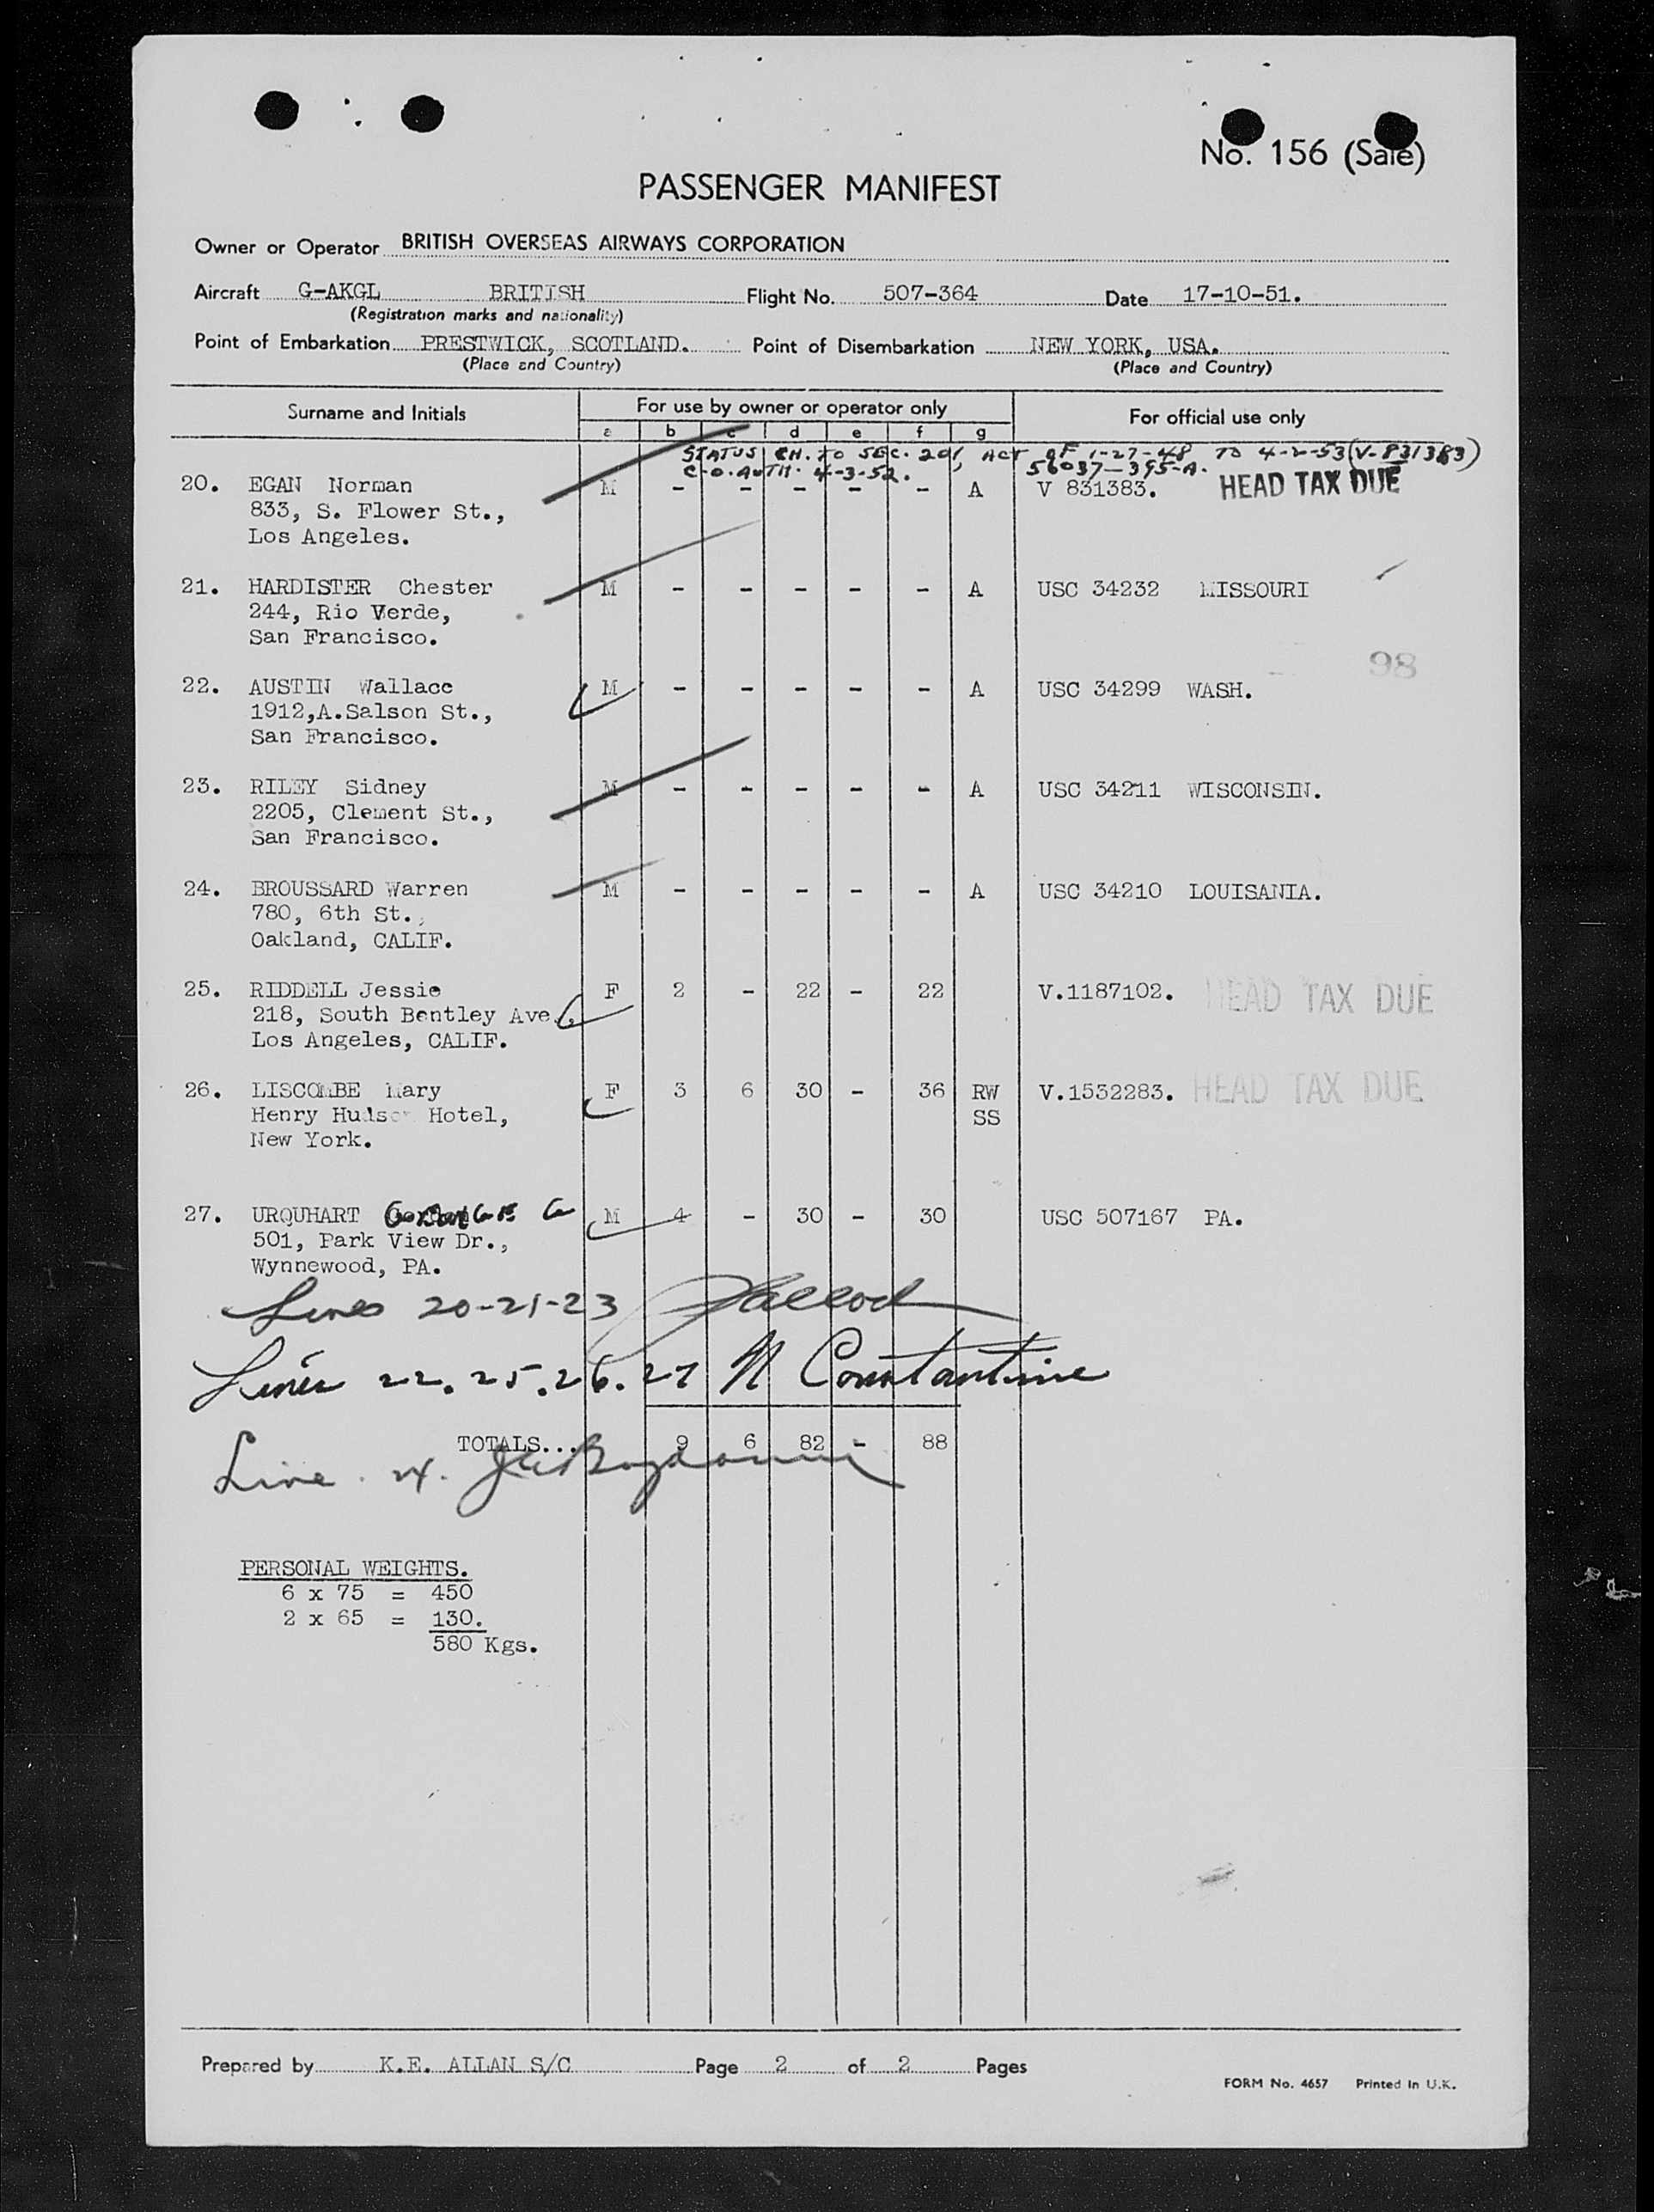 No. 156 (Sale)
PASSENGER MANIFEST
Owner or Operator BRITISH OVERSEAS AIRWAYS CORPORATION
Aircraft G-AKGL BRITISH Flight No. 507-364 Date 17-10-51.
(Registration marks and nationality)
Point of Embarkation PRESTWICK, SCOTLAND. Point of Disembarkation NEW YORK, USA.
(Place and Country) (Place and Country)
Surname and Initials For use by owner or operator only For official use only
a b c d e f g
STATUS CH. TO SEC. 201, ACT OF 1-27-48 TO 4-2-53 (V-831383)
C-O. AUTH. 4-3-52. 56037-395-A.
20. EGAN Norman M - - - - - A V 831383. HEAD TAX DUE
833, S. Flower St.,
Los Angeles.
21. HARDISTER Chester M - - - - - A USC 34232 MISSOURI
244, Rio Verde,
San Francisco.
98
22. AUSTIN Wallace M - - - - - A USC 34299 WASH.
1912,A.Salson St.,
San Francisco.
23. RILEY Sidney M - - - - - A USC 34211 WISCONSIN.
2205, Clement St.,
San Francisco.
24. BROUSSARD Warren M - - - - - A USC 34210 LOUISANIA.
780, 6th St.,
Oakland, CALIF.
25. RIDDELL Jessie F 2 - 22 - 22 V.1187102. HEAD TAX DUE
218, South Bentley Ave.,
Los Angeles, CALIF.
26. LISCOMBE Mary F 3 6 30 - 36 RW V.1532283. HEAD TAX DUE
Henry Hudson Hotel, SS
New York.
27. URQUHART G M 4 - 30 - 30 USC 507167 PA.
501, Park View Dr.,
Wynnewood, PA.
Lines 20-21-23
Lines 22.25.26.27 N Constantine
TOTALS... 9 6 82 - 88
Line 24.
PERSONAL WEIGHTS.
6 x 75 = 450
2 x 65 = 130.
580 Kgs.
Prepared by K.E. ALLAN S/C Page 2 of 2 Pages
FORM No. 4657 Printed in U.K.